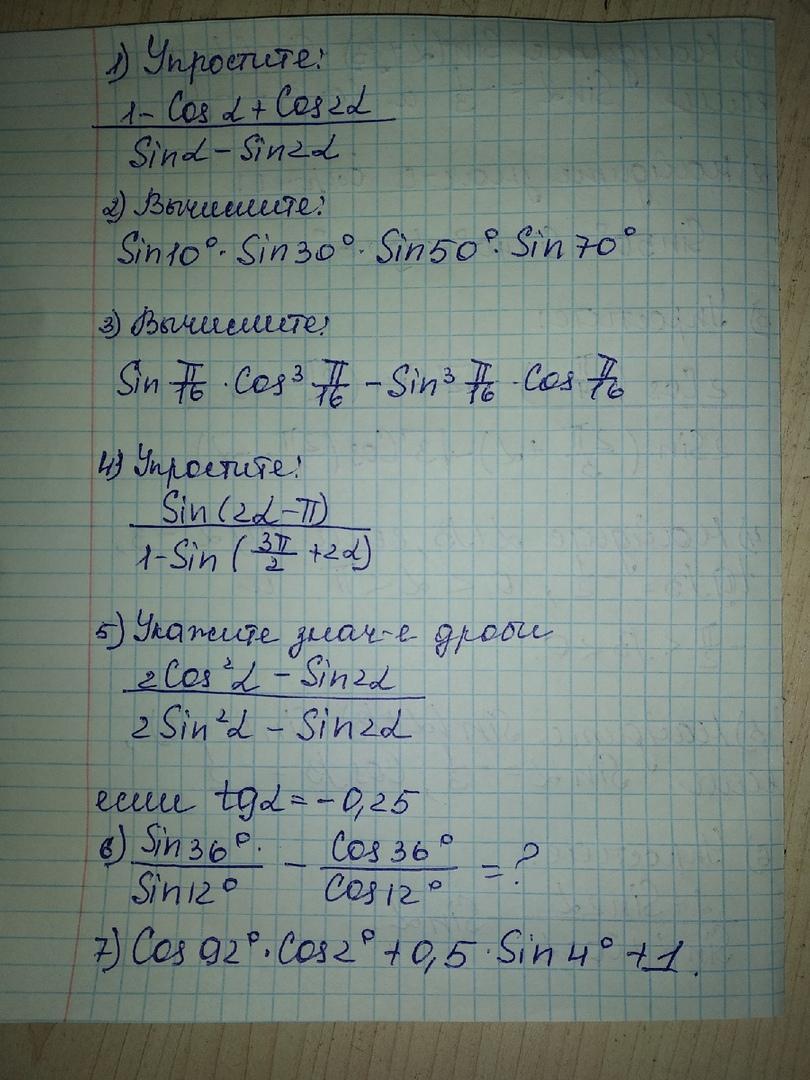 1) Упростите:
1 - Cos α + Cos2α
Sinα - Sin2α
2) Вычислите:
Sin10° · Sin30° · Sin50° · Sin70°
3) Вычислите:
Sin π/16 · Cos³ π/16 - Sin³ π/16 · Cos π/16
4) Упростите:
Sin(2α - π)
1 - Sin(3π/2 + 2α)
5) Укажите знач-е дроби
2Cos²α - Sin2α
2Sin²α - Sin2α
если tgα = -0,25
6) Sin36°/Sin12° - Cos36°/Cos12° = ?
7) Cos92° · Cos2° + 0,5 · Sin4° + 1.